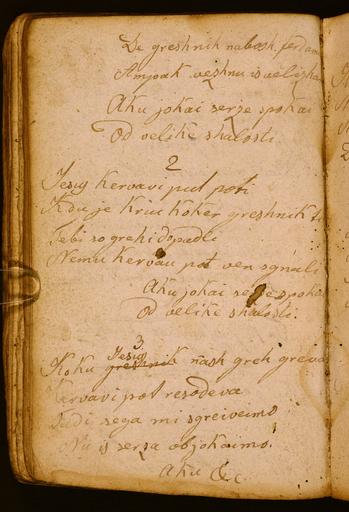 De greshnik nabosh ferdam
Ampak veshnu isvelizhan
Aku jokai serze spokai
Od velike shalosti
2
Jesus kervavi put poti
Kdu je kriu koker greshnik ti
Tebi so grehi dopadli
Nemu kervau pot ven sgnali
Aku jokai serze spoka
Od velike shalosti.
3
Koku Jesus greshnik nash greh greva
Kervavi pot resodeva
Tudi sega mi sgreivaimo
Nu is serza objokaimo.
Aku &c